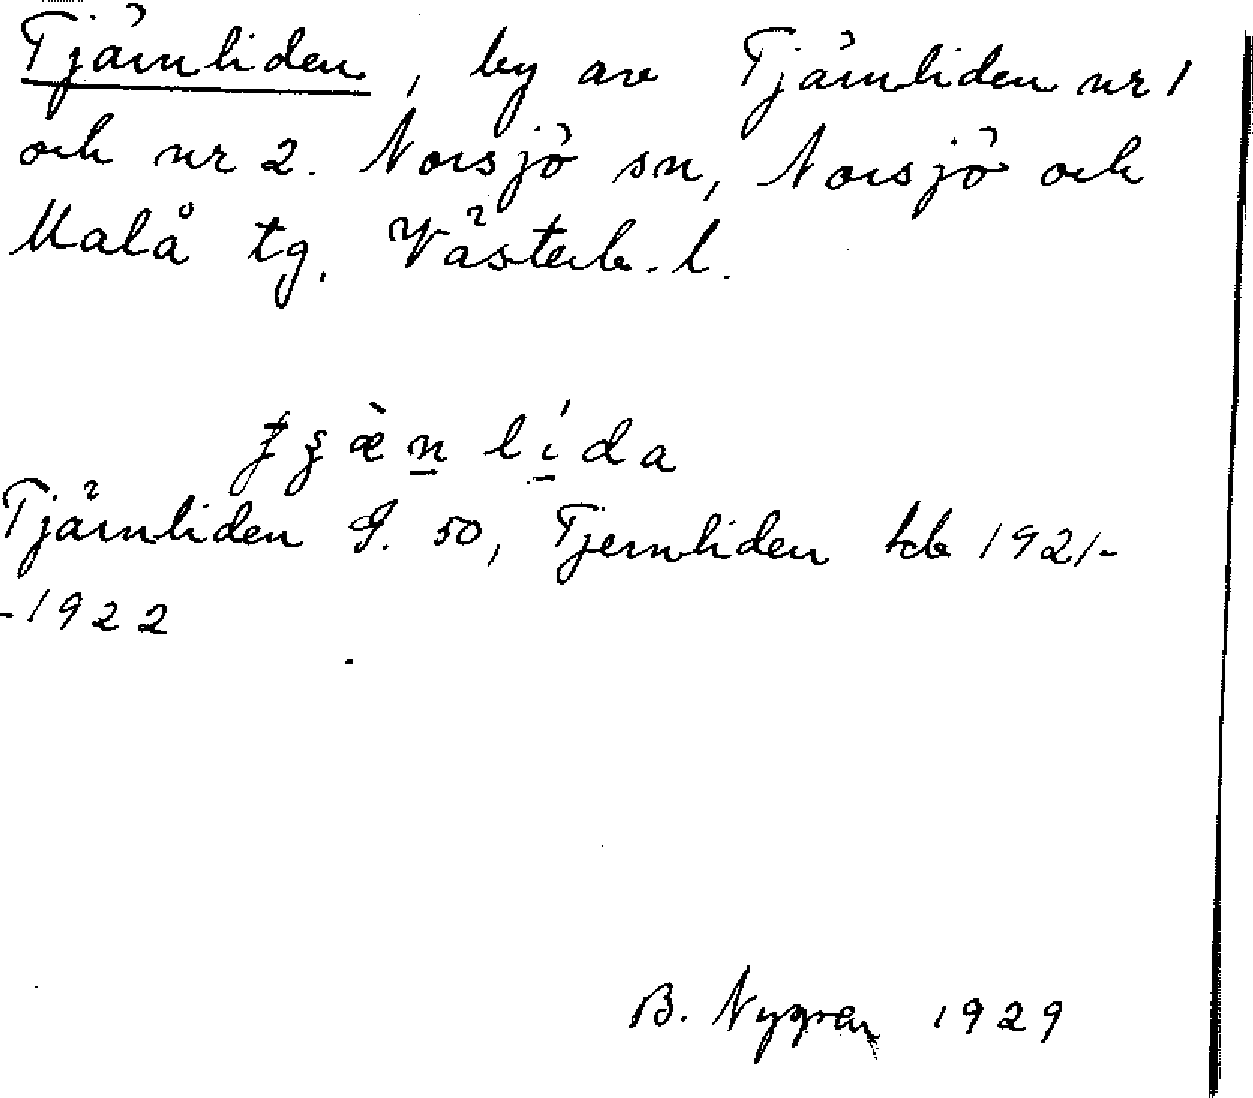 Tjärnliden, by av Tjärnliden nr 1
och nr 2. Norsjö sn, Norsjö och
Malå tg. Västerb. l.
lída
Tjärnliden G. 50, Tjernliden tcb 1921-
-1922
B. Nygren 1929